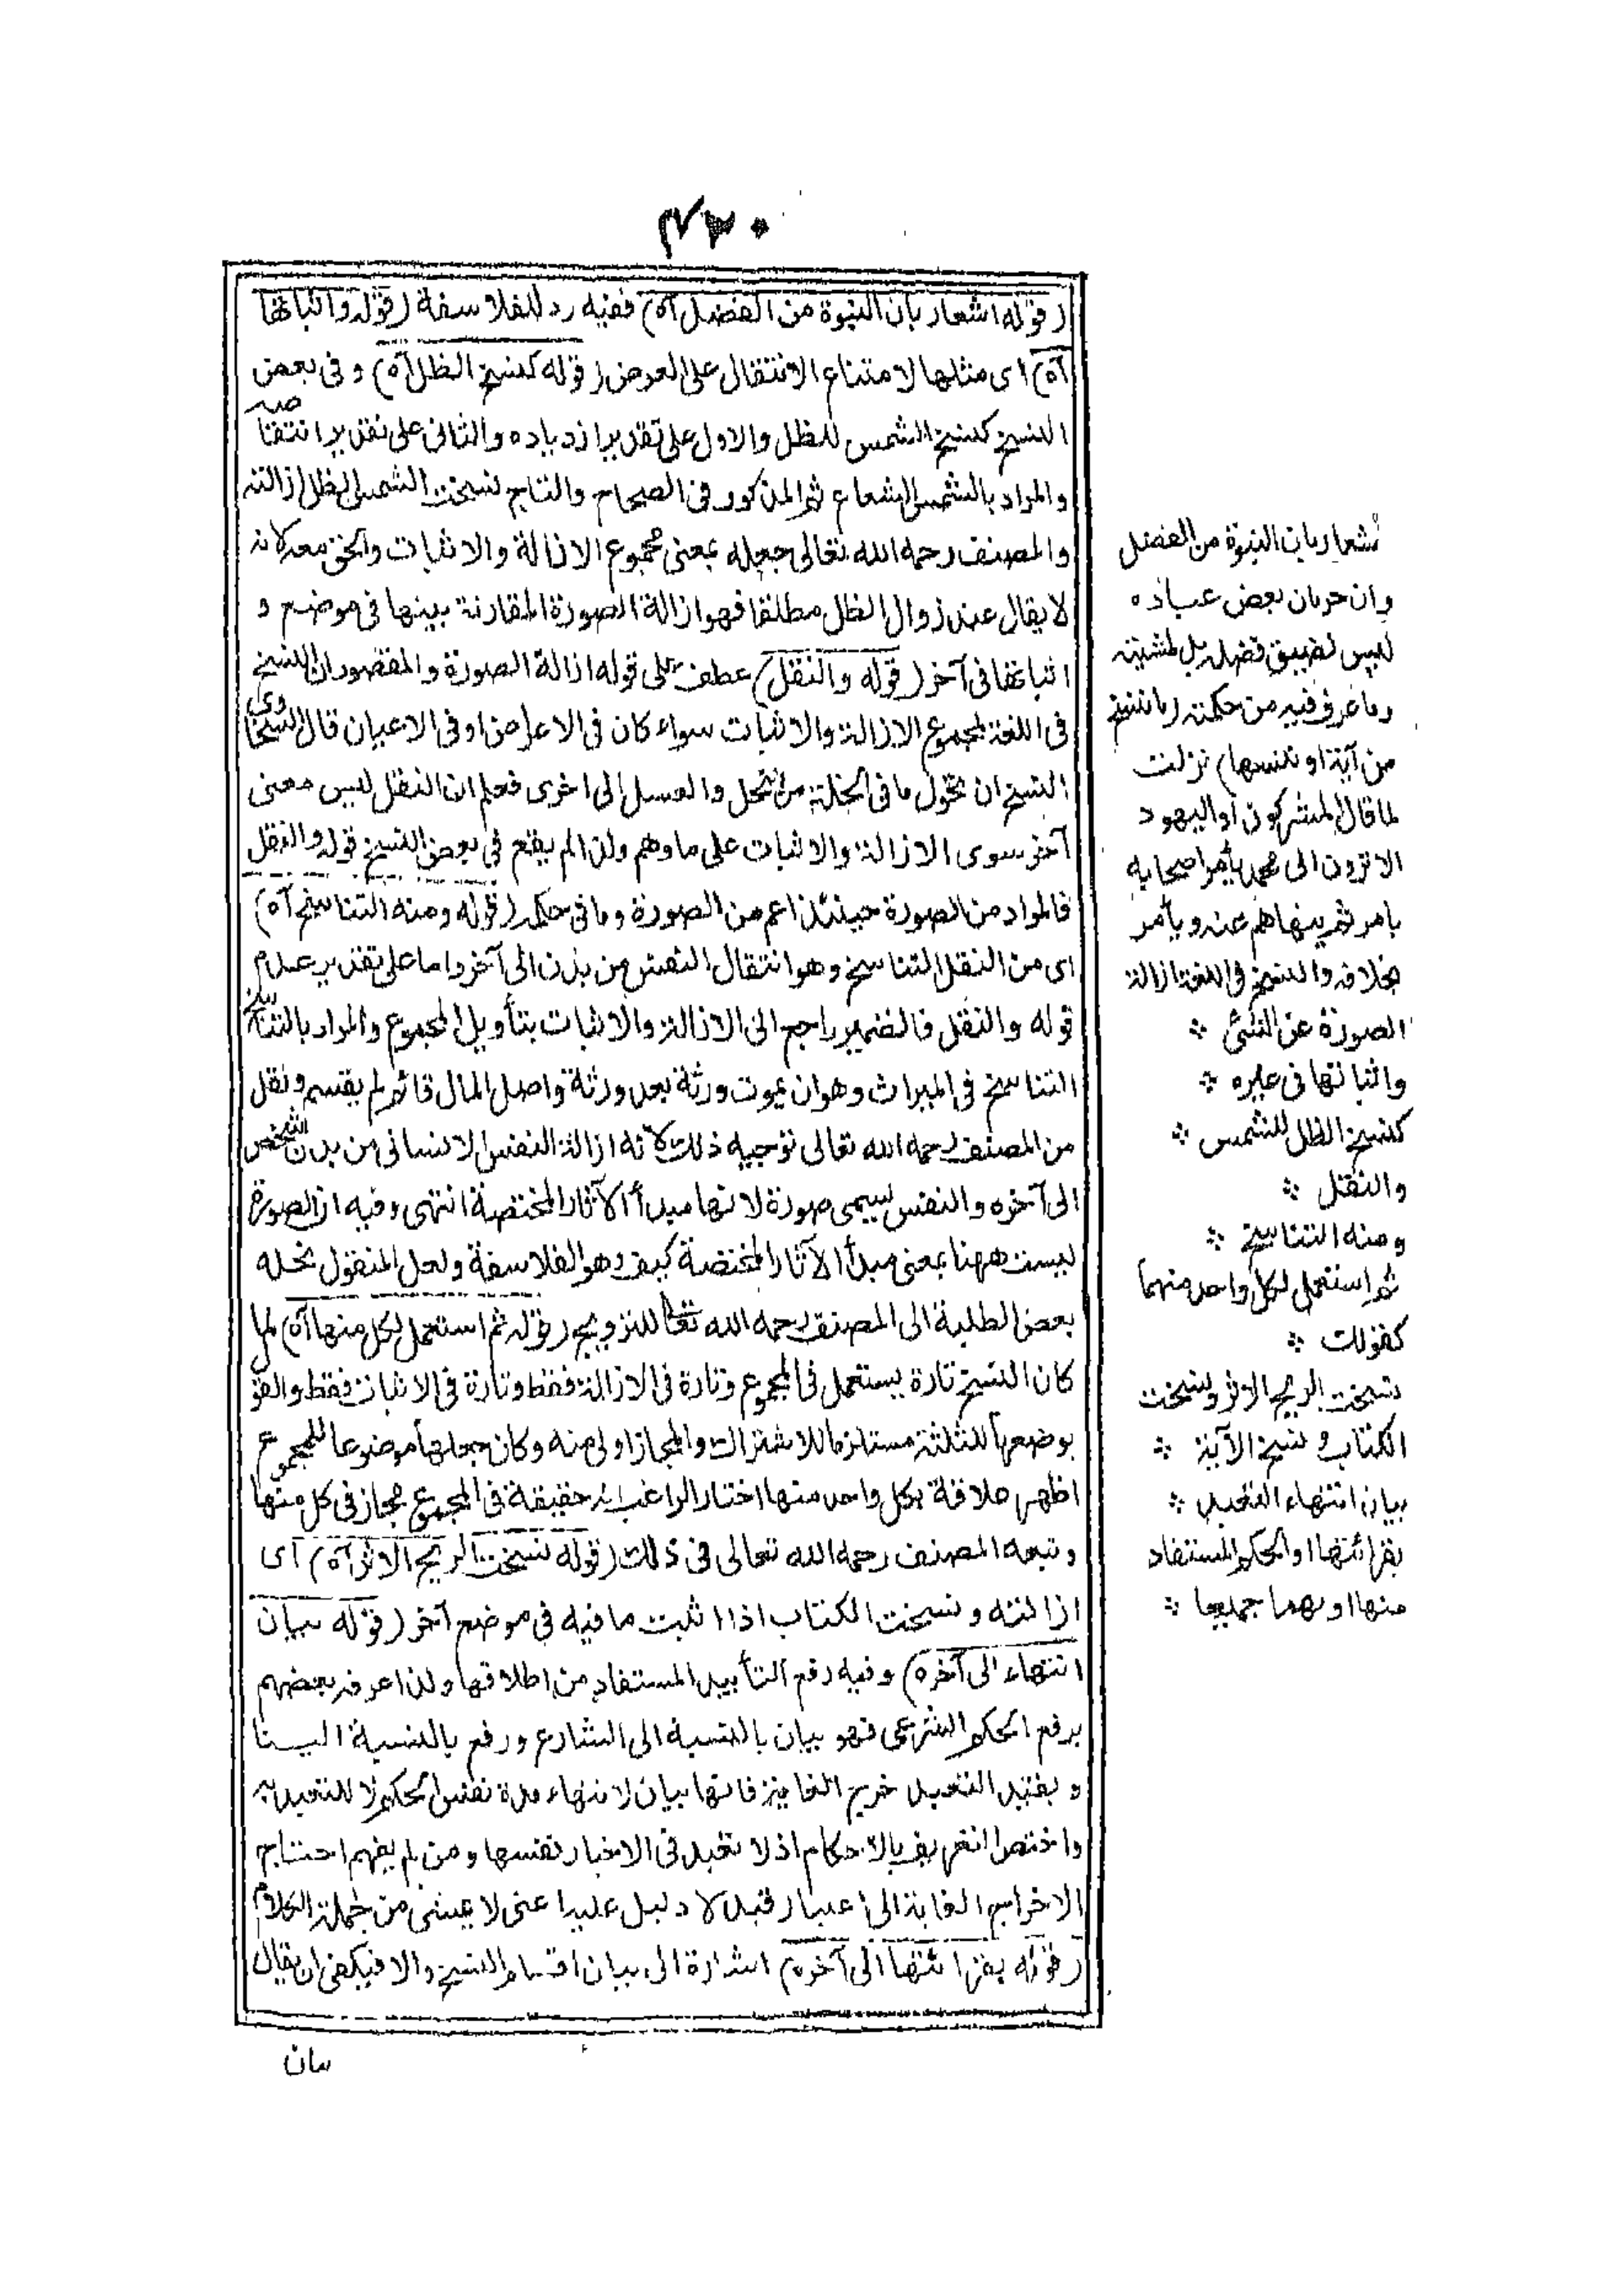 ٤٣٠
(قوله اشعار بأن النبوة من الفضل آه) ففيه رد للفلاسفة (قوله واثباتها
آه) اى مثلها لامتناع الانتقال على العرض (قوله كنسخ الظل آه) وفى بعض
النسخ كنسخ الشمس للظل والاول على تقدير ازدياده والثانى على تقدير انتقاصه
والمراد بالشمس الشعاع ثم المذكور فى الصحاح والتاج نسخت الشمس الظل ازالته
والمصنف رحمه الله تعالى جعله بمعنى مجموع الازالة والاثبات والحق معه لانه
لا يقال عند زوال الظل مطلقا فهو ازالة الصورة المقارنة بينها فى موضع و
اثباتها فى آخر (قوله والنقل) عطف على قوله ازالة الصورة والمقصود ان النسخ
فى اللغة لمجموع الازالة والاثبات سواء كان فى الاعراض او فى الاعيان قال السخاوى
النسخ ان تحول ما فى الخلية من النحل والعسل الى اخرى فعلم ان النقل ليس معنى
آخر سوى الازالة والاثبات على ما وهم ولذا لم يقع فى بعض النسخ قوله والنقل
فالمراد من الصورة حينئذ اعم من الصورة وما فى حكمه (قوله ومنه التناسخ آه)
اى من النقل التناسخ وهو انتقال النفس من بدن الى آخر واما على تقدير عدم
قوله والنقل فالضمير راجع الى الازالة والاثبات بتأويل المجموع والمراد بالتناسخ
التناسخ فى الميراث وهو ان يموت ورثة بعد ورثة واصل المال قائم لم يقسم ونقل
من المصنف رحمه الله تعالى توجيه ذلك لانه ازالة النفس الانسانى من بدن الشخص
الى آخره والنفس يسمى صورة لانها مبدأ الآثار المختصة انتهى وفيه ان الصورة
ليست ههنا بمعنى مبدأ الآثار المختصة كيف وهو الفلاسفة ولعل المنقول نحله
بعض الطلبة الى المصنف رحمه الله تعالى للترويج (قوله ثم استعمل لكل منها آه) لما
كان النسخ تارة يستعمل فى المجموع وتارة فى الازالة فقط وتارة فى الاثبات فقط والقو
بوضعها للثلثة مستلزما للاشتراك والمجاز اولى منه وكان جعلها موضوعا للمجموع
اظهر علاقة بكل واحد منها اختار الراغب انه حقيقة فى المجموع مجاز فى كل منها
وتبعه المصنف رحمه الله تعالى فى ذلك (قوله نسخت الريح الاثر آه) اى
ازالته ونسخت الكتاب اذا اثبت ما فيه فى موضع آخر (قوله بيان
انتهاء الى آخره) وفيه رفع التأبيد المستفاد من اطلاقها ولذا عرفه بعضهم
برفع الحكم الشرعى فهو بيان بالنسبة الى الشارع ورفع بالنسبة الينا
وبقيد التعبد خرج الغاية فانها بيان لانتهاء مدة نفس الحكم لا للتعبد به
واختص التعريف بالاحكام اذ لا تعبد فى الاخبار نفسها ومن لم يفهم احتاج
الاخراج الغاية الى اعتبار قيد لا دليل عليه اعنى لا يبتنى من جملة الكلام
(قوله بقرائتها الى آخره) اشارة الى بيان اقسام النسخ والا فيكفى ان يقال
بيان
شعار بان النبوة من الفضل
وان حرمان بعض عباده
ليس لضيق فضله بل لمشيته
وما عرف فيه من حكمته (ما ننسخ
من آية او ننسها) نزلت
لما قال المشركون او اليهود
الا ترون الى محمد يأمر اصحابه
بامر ثم ينهاهم عنه ويأمر
بخلافه والنسخ فى اللغة ازالة
الصورة عن الشئ
واثباتها فى غيره
كنسخ الظل للشمس
والنقل
ومنه التناسخ
ثم استعمل لكل واحد منهما
كقولك
نسخت الريح الاثر ونسخت
الكتاب ونسخ الآية
بيان انتهاء التعبد
بقرائتها او الحكم المستفاد
منها او بهما جميعا